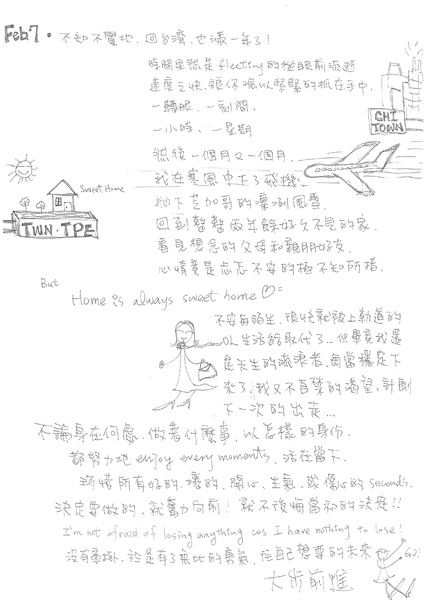 Feb 7. 不知不覺地,回台灣,也滿一年了!
時間果然是 fleeting 的從眼前流逝
速度之快,讓你難以緊緊的抓在手中
一轉眼、一剎間、
一小時、一星期
然後一個月又一個月.
CHI TOWN
我在寒風中上了飛機
拋下芝加哥的凜冽風雪
Sweet Home
TWN. TPE
回到整整兩年餘好久不見的家
看見想念的父母和親朋好友
心情竟是忐忑不安的極不知所措
But
Home is always sweet home
不安與陌生,很快就被上軌道的
OL生活給取代了...但畢竟我還
是天生的流浪者,每當穩定下
來了,我又不自禁的渴望、計劃
下一次的出走...
不論身在何處,做著什麼事,以怎樣的身份.
都努力地 enjoy every moments, 活在當下.
珍惜所有好的、壞的、開心、生氣、或傷心的 seconds.
決定要做的,就奮力向前!就不後悔當初的決定!!
I'm not afraid of losing anything cos I have nothing to lose!
沒有牽掛,於是有了無比的勇氣,往自己想要的未來
GO!
大步前進